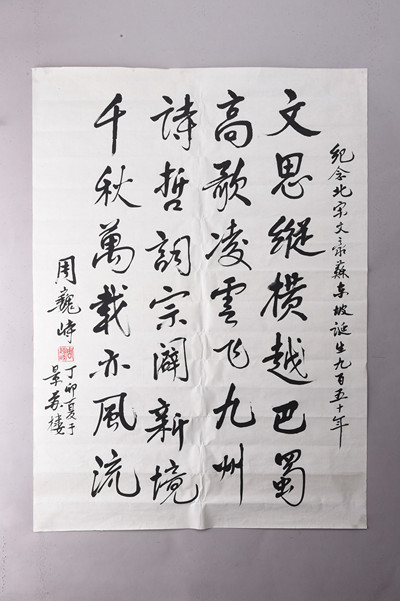 纪念北宋文豪蘇东坡诞生九百五十年
文思縱横越巴蜀
高歌凌雲飞九州
詩哲詞宗闢新境
千秋萬載亦風流
周巍峙
丁卯夏于
景苏楼